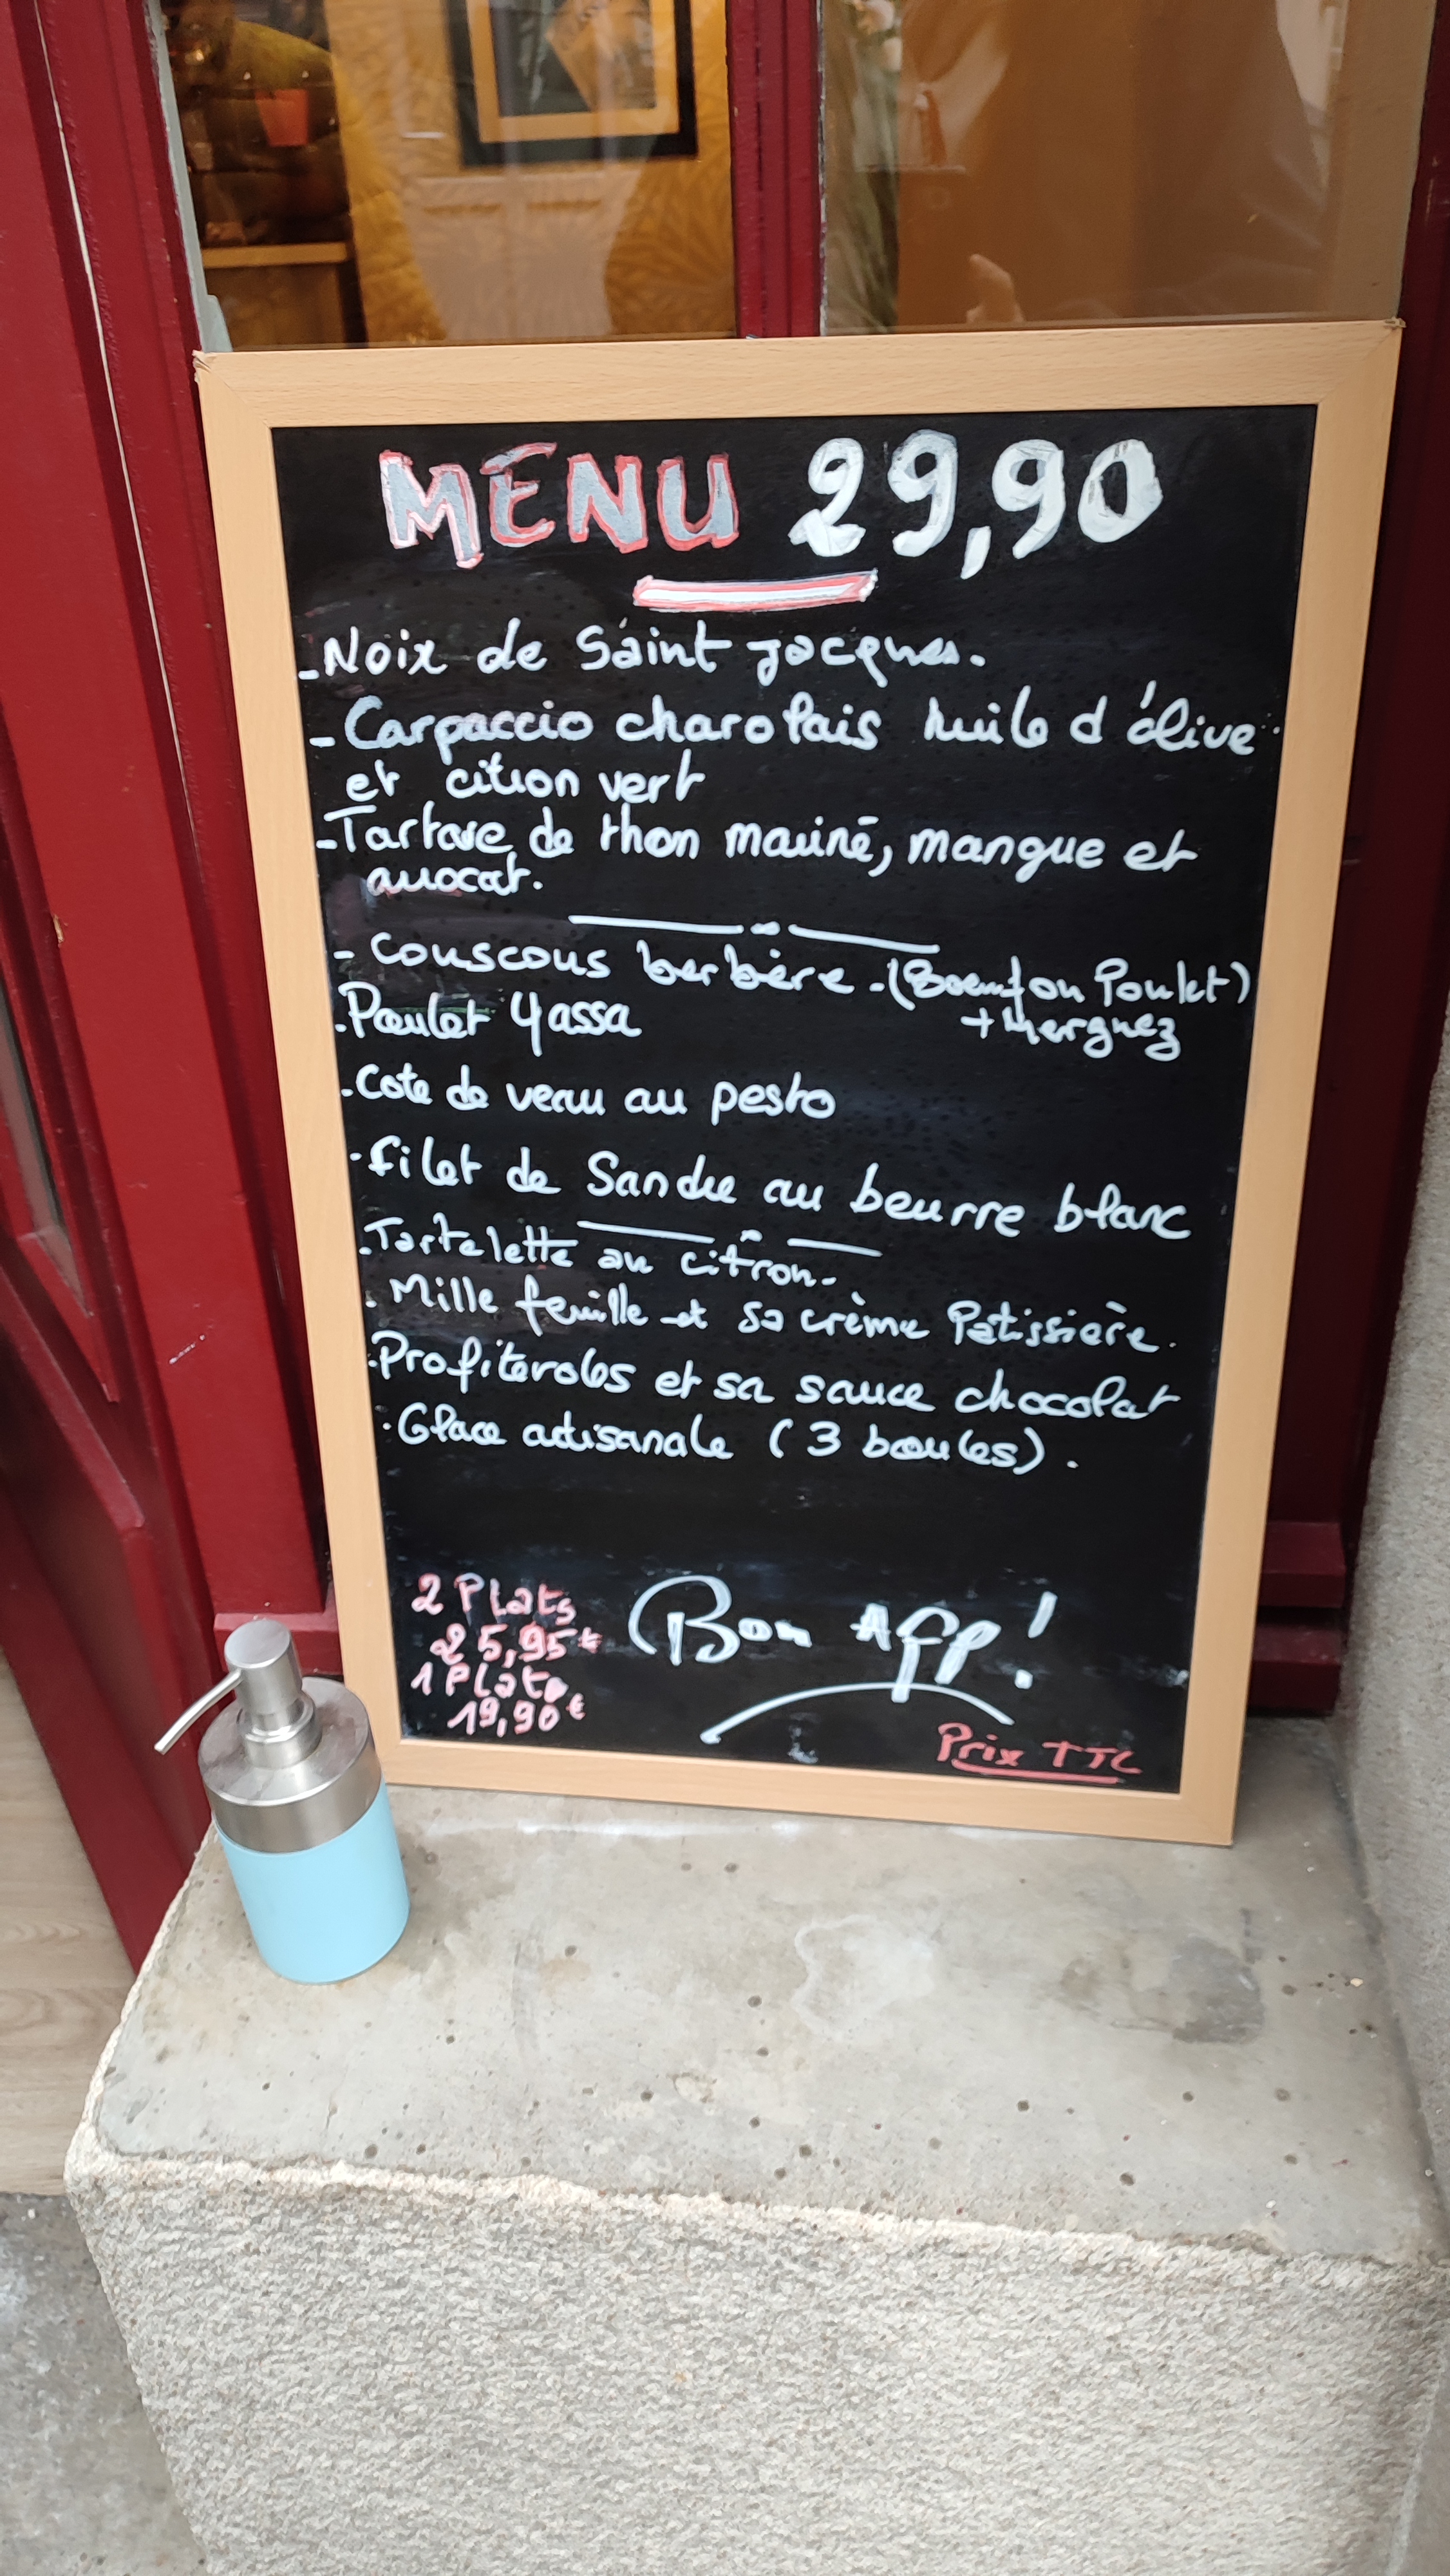 MENU 29,90
- Noix de Saint Jacques.
- Carpaccio charolais huile d'olive
et citron vert
- Tartare de thon mariné, mangue et
avocat.
- Couscous berbère. (Boeuf ou Poulet)
+ Merguez
. Poulet Yassa
. Cote de veau au pesto
. filet de Sandre au beurre blanc
. Tartelette au citron.
. Mille feuille et sa crème Patissière.
. Profiteroles et sa sauce chocolat
. Glace artisanale (3 boules).
2 Plats
25,95€
1 Plat
19,90€
Bon App!
Prix TTC